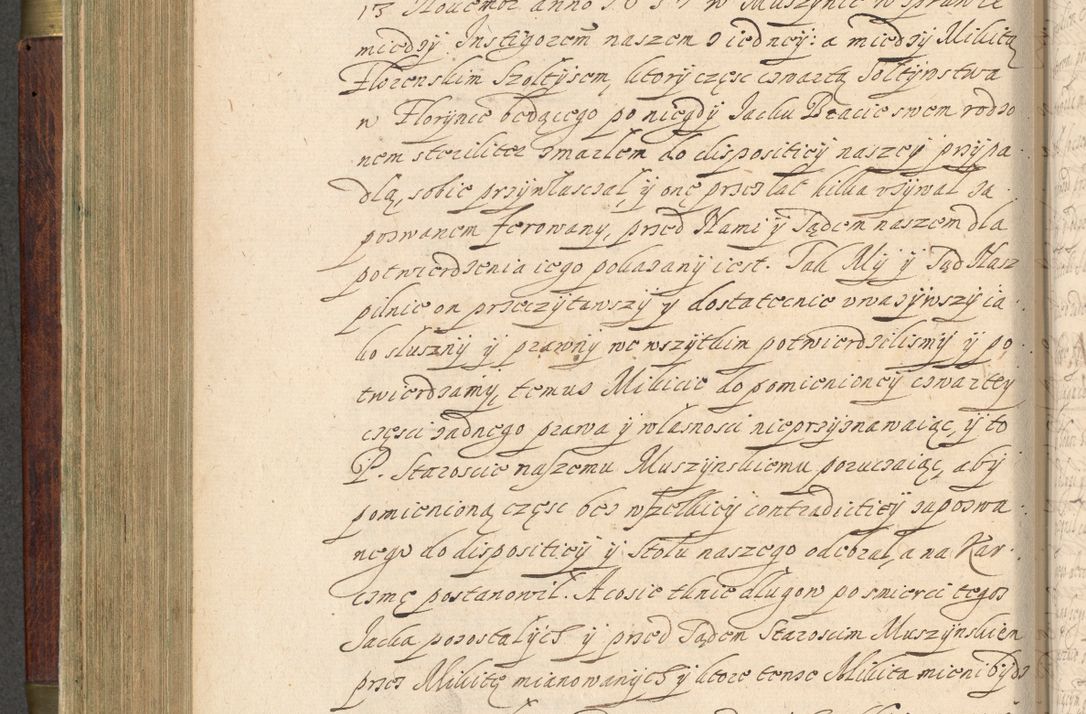 13 Nouembr anno 1657 w Muszynie w sprawie
miedzy Instigorem naszem z iedney: a miedzy Mikitą
Florenskim Szołtysem, ktory częsc czwartą Sołtystwa
w Florynce będącego po niegdy Jacku Bracie swem rodzo
nem steriliter zmarłem do dispositiey naszey przypa
dłą, sobie przywłasczał, y onę przez lat kilka vzywał za
pozwanem ferowany, przed Nami y Sądem naszem dla
potwierdzenia iego pokazany iest. Tak My y Sąd Nasz
pilnie on przeczytawszy y dostatecznie vwazywszy ia
ko słuszny y prawny we wszytkim potwierdzilismy y po
twierdzamy, temuz Mikicie do pomienioney czwartey
części zadnego prawa y własnosci nieprzyznawaiąc, y to
P. Staroscie naszemu Muszynskiemu poruczaiąc, aby
pomienioną częsc bez wszelkiey contradictiey zapozwa
nego do dispositiey y Stołu naszego odebrał, a na Kar
czmę postanowił. A co sie tknie długow po smierci tegoz
Jacka pozostałych y przed Sądem Staroscim Muszynskiem
przez Mikitę mianowanych y ktore tenze Mikita mieni bydz